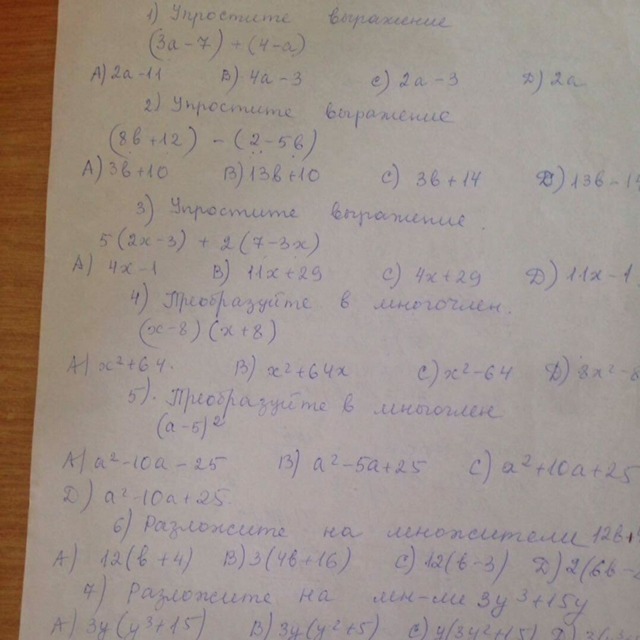 1) Упростите выражение
(3a-7) + (4-a)
A) 2a-11 B) 4a-3 C) 2a-3 D) 2a
2) Упростите выражение
(8b+12) - (2-5b)
A) 3b+10 B) 13b+10 C) 3b+14 D) 13b-14
3) Упростите выражение.
5(2x-3) + 2(7-3x)
A) 4x-1 B) 11x+29 C) 4x+29 D) 11x-1
4) Преобразуйте в многочлен.
(x-8)(x+8)
A) x²+64. B) x²+64x C) x²-64 D) 8x²-8
5). Преобразуйте в многочлен
(a-5)²
A) a²-10a-25 B) a²-5a+25 C) a²+10a+25
D) a²-10a+25
6) Разложите на множители 12b+
A) 12(b+4) B) 3(4b+16) C) 12(b-3) D) 2(6b-
7) Разложите на мн-ли 3y³+15y
A) 3y(y³+15) B) 3y(y²+5) C) y(3y²+15) D)